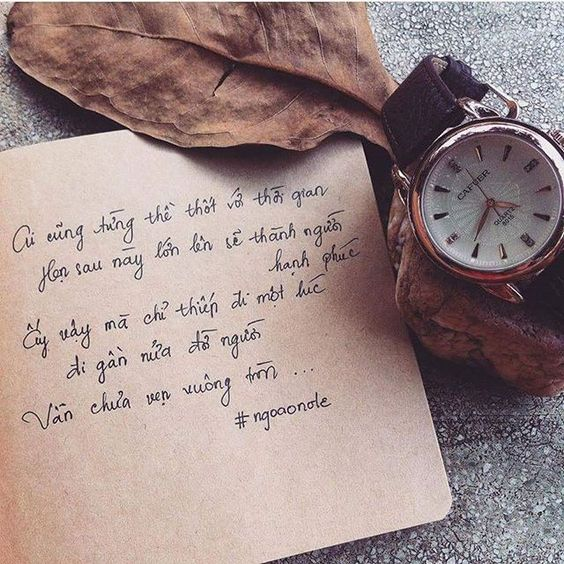 Ai cũng từng thề thốt với thời gian
Hẹn sau này lớn lên sẽ thành người
hạnh phúc
Ấy vậy mà chỉ thiếp đi một lúc
đi gần nửa đời người
Vẫn chưa vẹn vuông tròn ...
#ngoaonote
CAFUER
QUARTZ